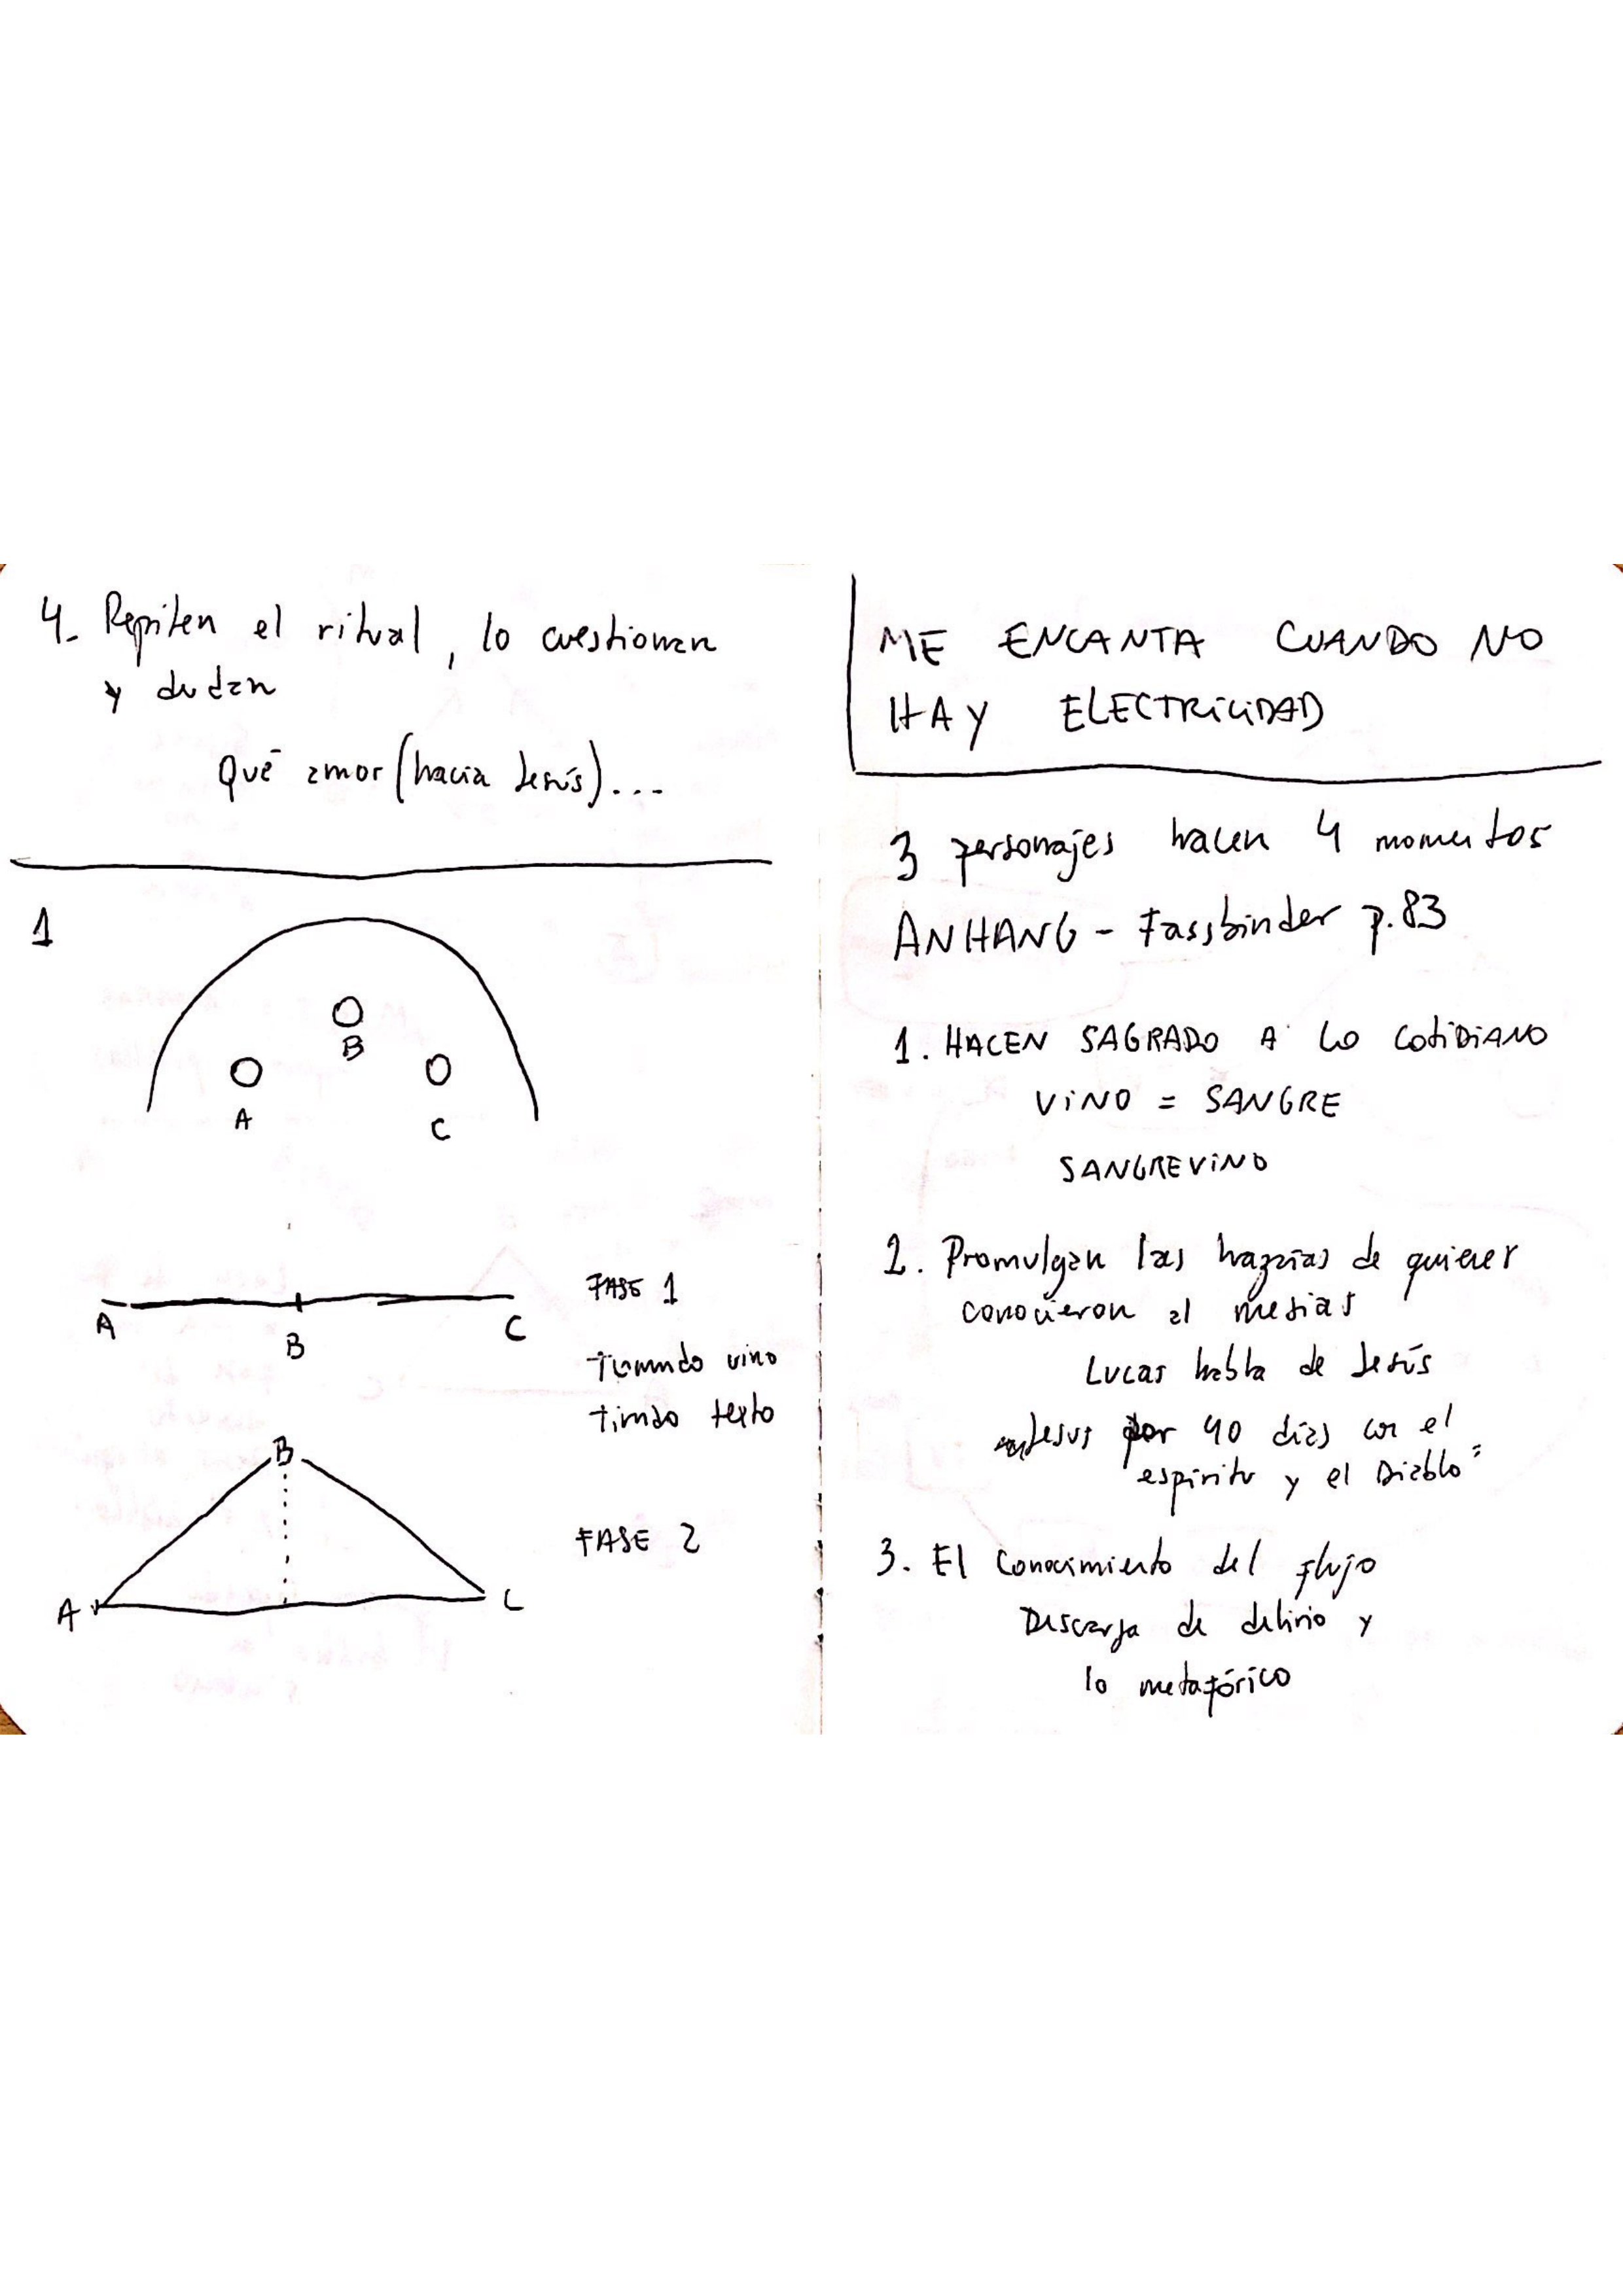 4. Repiten el ritual, lo cuestionan
y dudan
Qué amor (hacia Jesús)...
1
B
A
C
A
B
C
FASE 1
Tomando vino
tirado texto
B
A
C
FASE 2
ME ENCANTA CUANDO NO
HAY ELECTRICIDAD
3 personajes hacen 4 momentos
ANHANG - Fassbinder p.83
1. HACEN SAGRADO A LO COTIDIANO
VINO = SANGRE
SANGREVINO
2. Promulgan las hazañas de quienes
conocieron al mesias
Lucas habla de Jesús
Jesus por 40 dias con el
espiritu y el Diablo
3. El conocimiento del flujo
Descarga de delirio y
lo metafórico